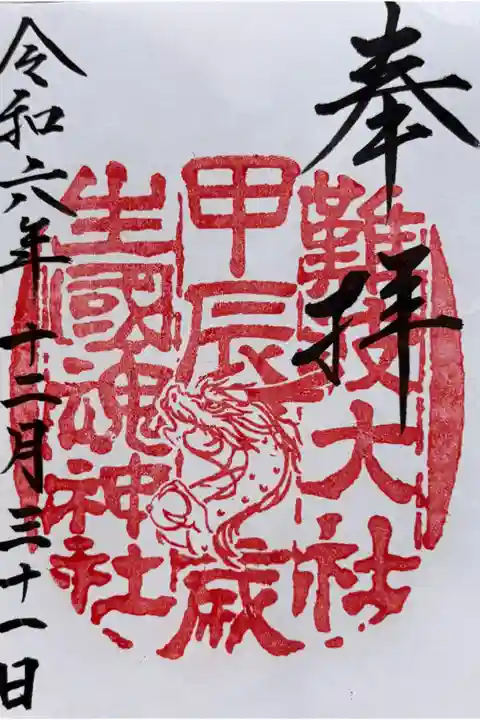 奉拝
難波大社
甲辰歳
生國魂神社
令和六年十二月三十一日